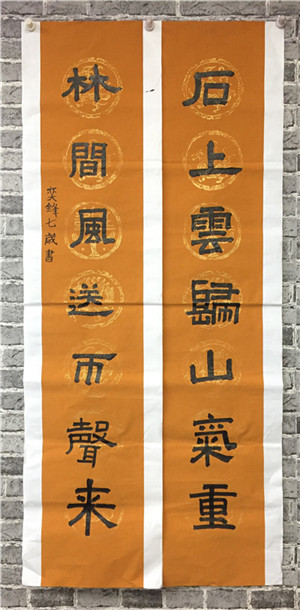 石上雲歸山氣重
林間風送雨聲来
奕鋒七歲書